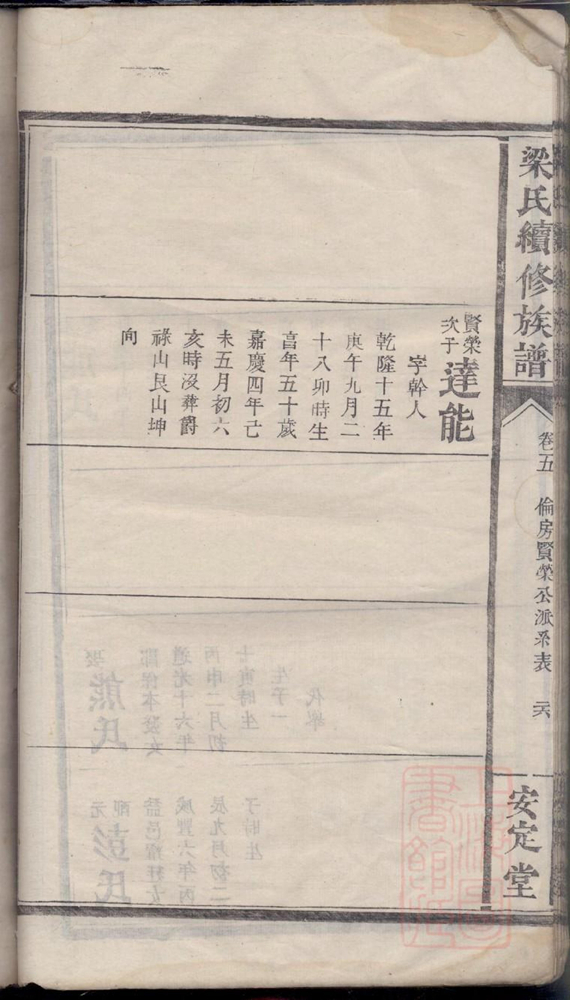 梁氏續修族譜
卷五
倫房賢榮公派系表
安定堂
賢榮
次子
達能
字幹人
乾隆十五年
庚午九月二
十八卯時生
亯年五十歲
嘉慶四年己
未五月初六
亥時沒葬爵
祿山艮山坤
向